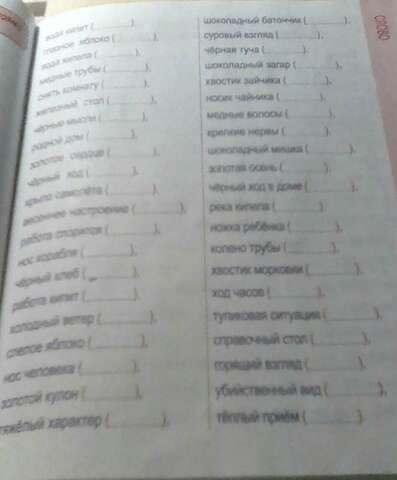 вода кипит (________),
глазное яблоко (________),
вода кипела (________),
медные трубы (________),
снять комнату (________),
железный стол (________),
чёрные мысли (________),
родной дом (________),
золотое сердце (________),
чёрный ход (________),
крыло самолёта (________),
весеннее настроение (________),
работа спорится (________),
нос корабля (________),
чёрный хлеб (________),
работа кипит (________),
холодный ветер (________),
спелое яблоко (________),
нос человека (________),
золотой кулон (________),
тяжёлый характер (________),
шоколадный батончик (________),
суровый взгляд (________),
чёрная туча (________),
шоколадный загар (________),
хвостик зайчика (________),
носик чайника (________),
медные волосы (________),
крепкие нервы (________),
шоколадный мишка (________),
золотая осень (________),
чёрный ход в доме (________),
река кипела (________),
ножка ребёнка (________),
колено трубы (________),
хвостик морковки (________),
ход часов (________),
тупиковая ситуация (________),
справочный стол (________),
горящий взгляд (________),
убийственный вид (________),
тёплый приём (________).
СЛОВО